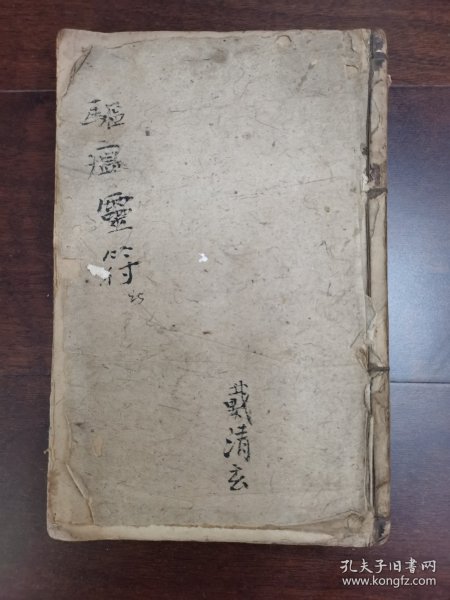 驅瘟靈符
戴清玄
孔夫子旧书网
www.kongfz.com